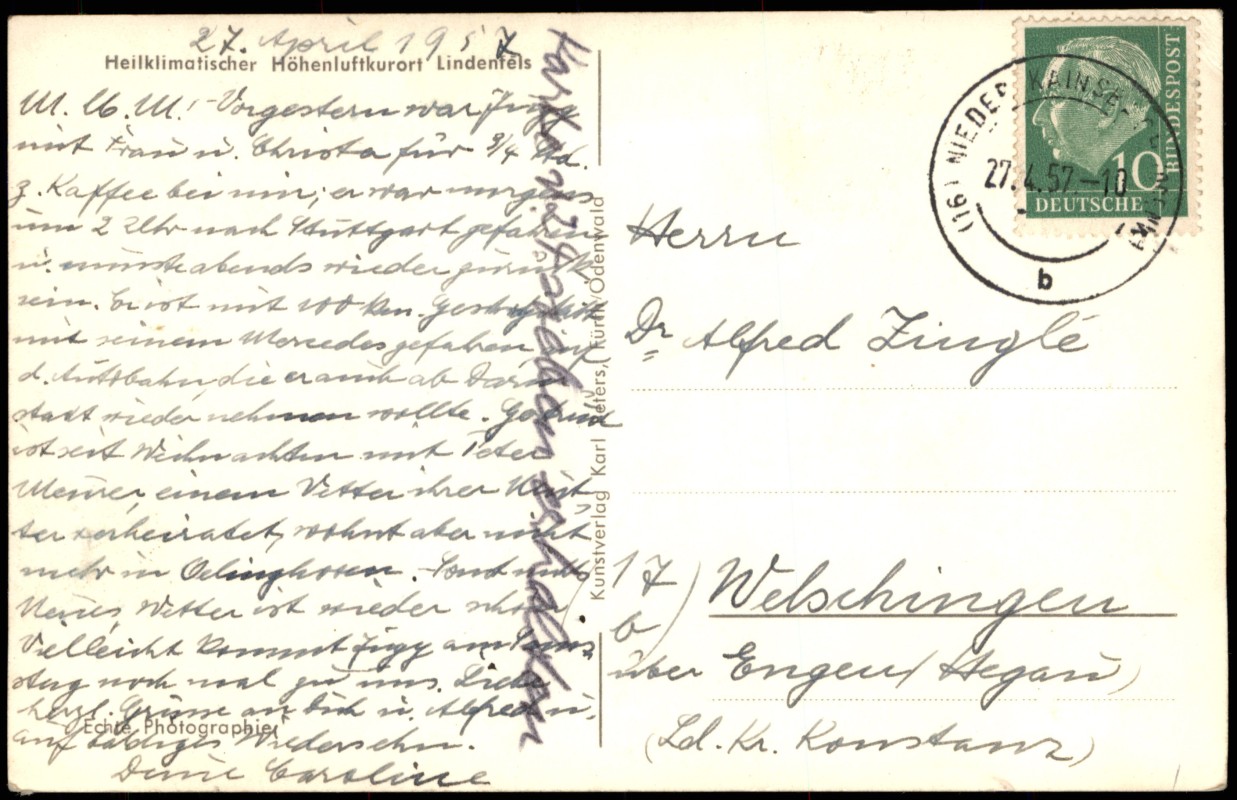 27. April 1957
Heilklimatischer Höhenluftkurort Lindenfels
Vorgestern war Jugg
mit Frau u. Christa für 3/4 Std.
z. Kaffee bei mir; er war morgens
um 2 Uhr nach Stuttgart gefahren
u. musste abends wieder zurück
sein. Er ist mit 100 km.
mit seinem Mercedes gefahren auf
d. Autobahn, die er auch ab Darm
stadt wieder nehmen wollte. Gertrud
ist seit Weihnachten mit Peter
Meurer einem Vetter ihrer
verheiratet, wohnt aber nicht
mehr in Oelinghoven. Sonst nichts
Neues, Wetter ist wieder schön
Vielleicht kommt Jugg am
noch mal zu uns. Liebe
herzl. Grüsse an Dich u. Alfred u.
auf baldiges Wiedersehn.
Deine Caroline
Echte Photographie
erhalten
Kunstverlag Karl Peters, Fürth/Odenwald
(16) NIEDER-KAINSBACH
27.4.57-10
b
10
DEUTSCHE
BUNDESPOST
Herrn
Dr Alfred Zinglé
17
b) Welschingen
über Engen (Hegau)
(Ld. Kr. Konstanz)